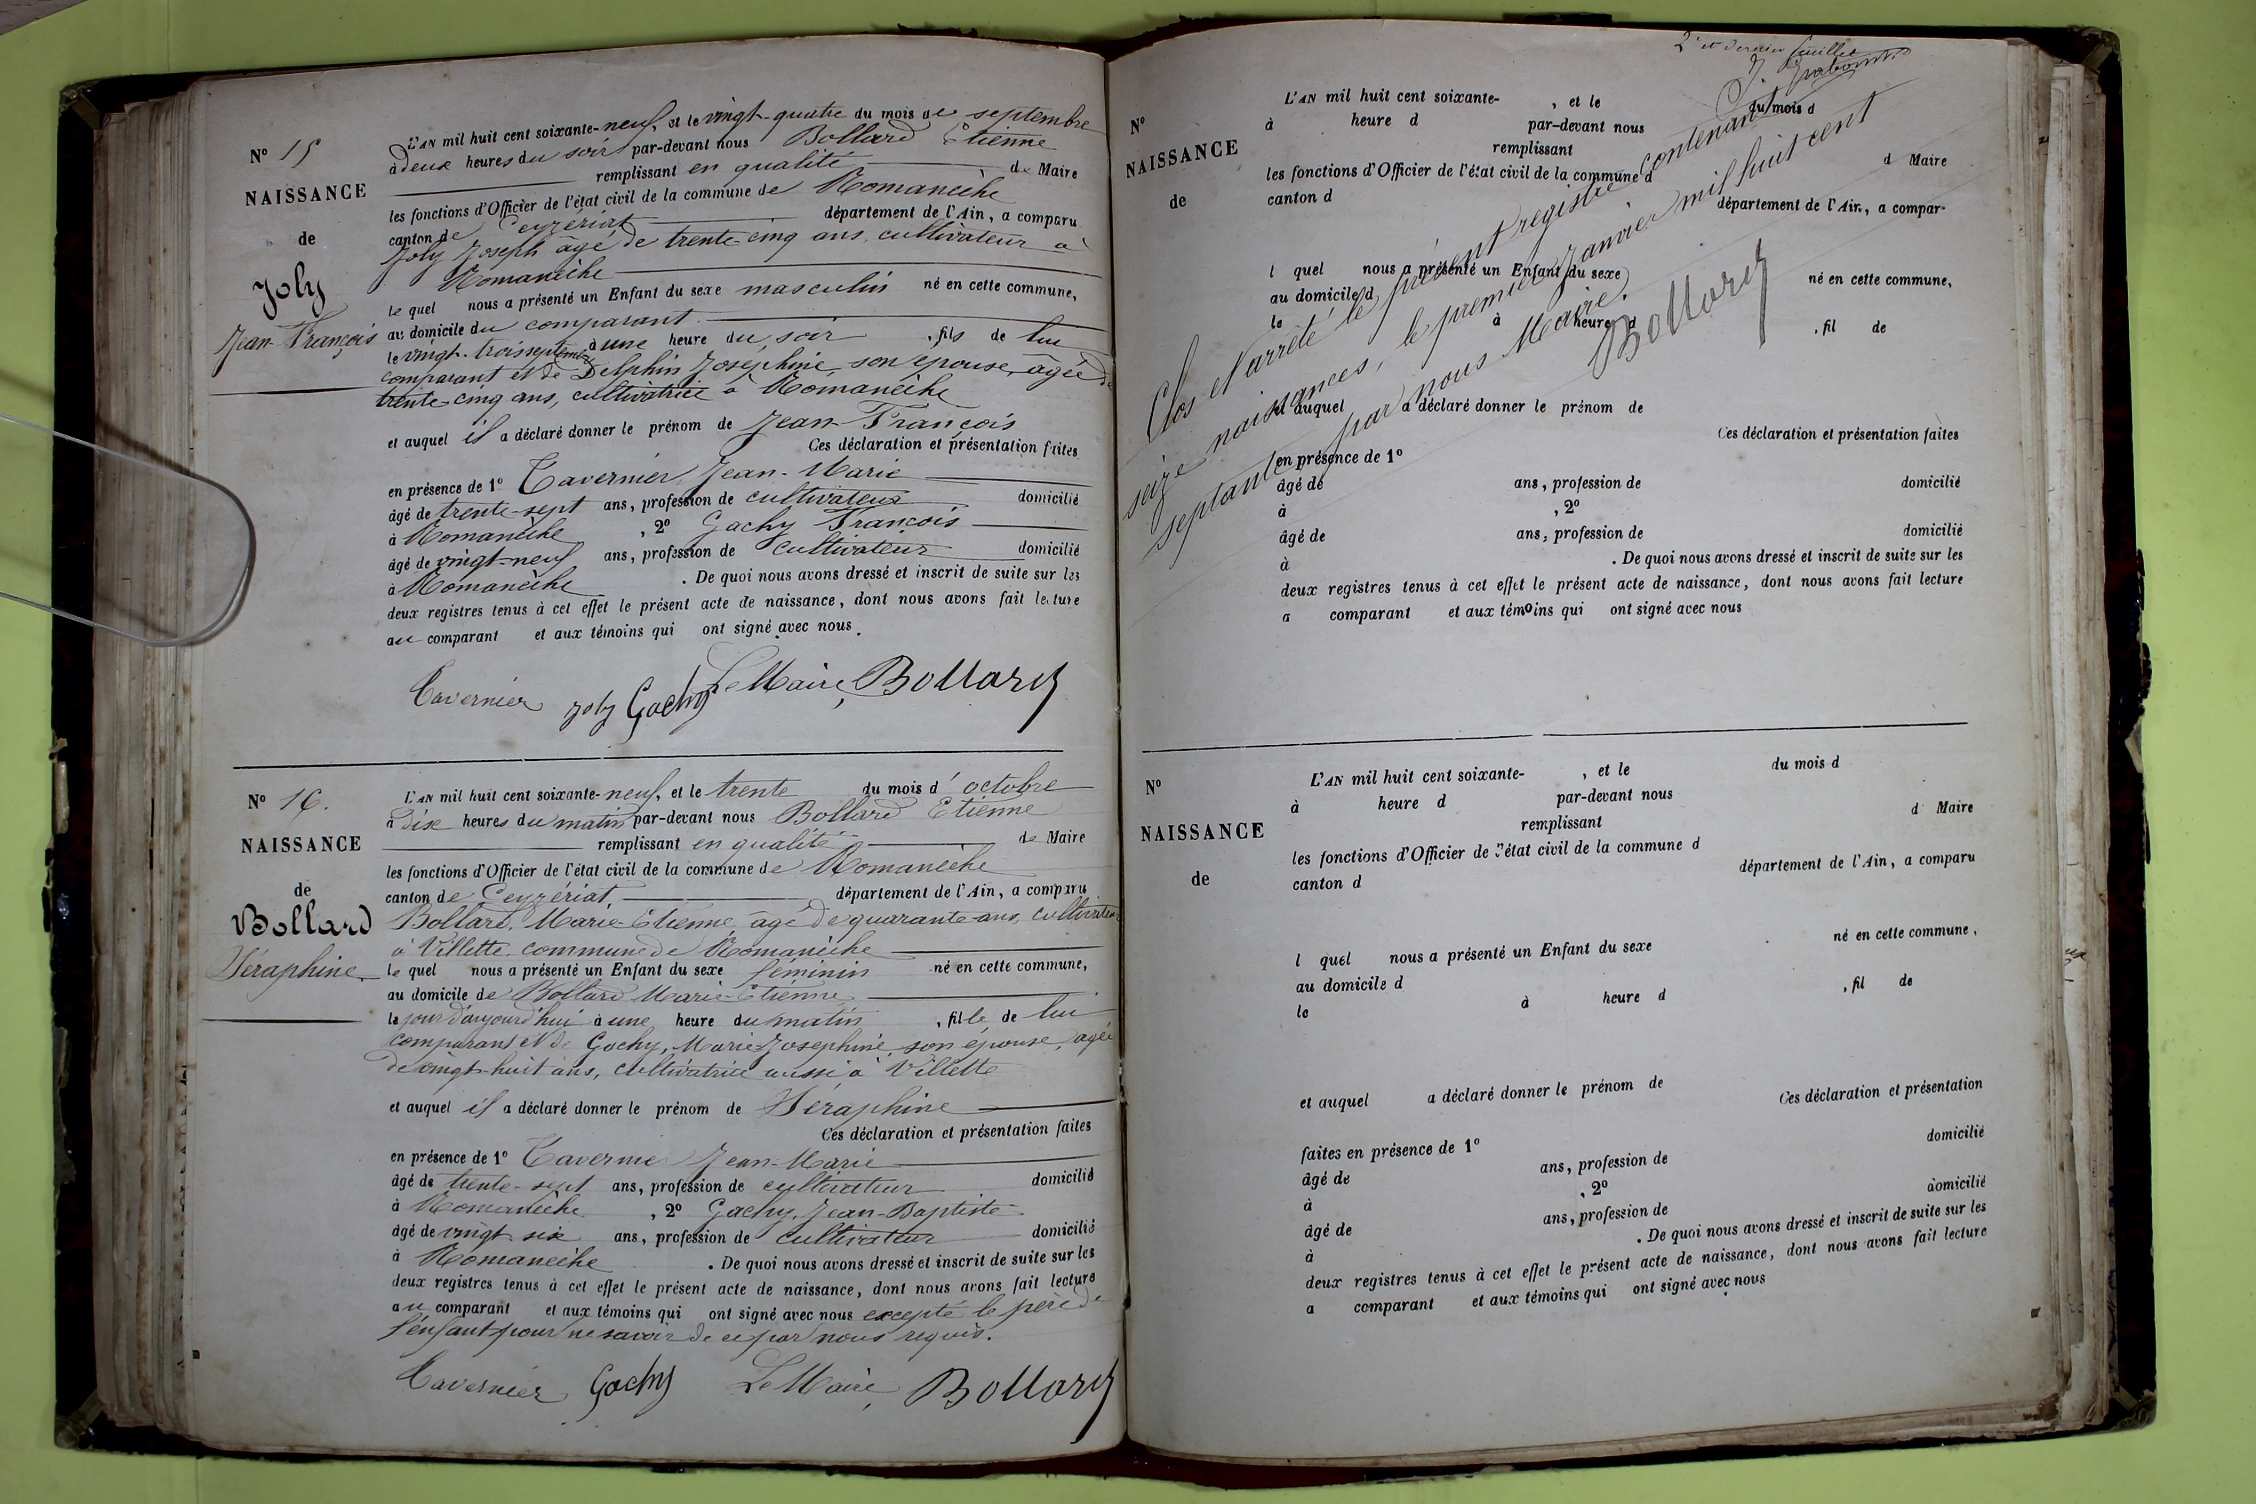 N° 15
NAISSANCE
de
Joly
Jean-François
L'AN mil huit cent soixante-neuf, et le vingt-quatre du mois de septembre
à deux heures du soir par-devant nous Bollard Etienne
remplissant en qualité de Maire
les fonctions d'Officier de l'état civil de la commune de Romanèche
canton de Ceyzériat département de l'Ain, a comparu
Joly Joseph âgé de trente-cinq ans, cultivateur à
Romanèche
le quel nous a présenté un Enfant du sexe masculin né en cette commune,
au domicile du comparant
le vingt-trois septembre à une heure du soir, fils de lui
comparant et de Delphin Joséphine, son épouse, âgée de
trente-cinq ans, cultivatrice à Romanèche
et auquel il a déclaré donner le prénom de Jean-François
Ces déclaration et présentation faites
en présence de 1° Tavernier, Jean-Marie
âgé de trente-sept ans, profession de cultivateur domicilié
à Romanèche, 2° Gachy François
âgé de vingt-neuf ans, profession de cultivateur domicilié
à Romanèche. De quoi nous avons dressé et inscrit de suite sur les
deux registres tenus à cet effet le présent acte de naissance, dont nous avons fait lecture
au comparant et aux témoins qui ont signé avec nous.
Tavernier Joly Gachy Le Maire, Bollard
N° 16.
NAISSANCE
de
Bollard
Séraphine
L'AN mil huit cent soixante-neuf, et le trente du mois d'octobre
à dix heures du matin par-devant nous Bollard Etienne
remplissant en qualité de Maire
les fonctions d'Officier de l'état civil de la commune de Romanèche
canton de Ceyzériat, département de l'Ain, a comparu
Bollard, Marie-Etienne, âgé de quarante ans, cultivateur
à Villette, commune de Romanèche
le quel nous a présenté un Enfant du sexe féminin né en cette commune,
au domicile de Bollard Marie-Etienne
le jour d'aujourd'hui à une heure du matin, fille de lui
comparant et de Gachy, Marie-Josephine, son épouse, âgée
de vingt-huit ans, cultivatrice aussi à Villette
et auquel il a déclaré donner le prénom de Séraphine
Ces déclaration et présentation faites
en présence de 1° Tavernier Jean-Marie
âgé de trente-sept ans, profession de cultivateur domicilié
à Romanèche, 2° Gachy, Jean-Baptiste
âgé de vingt six ans, profession de cultivateur domicilié
à Romanèche. De quoi nous avons dressé et inscrit de suite sur les
deux registres tenus à cet effet le présent acte de naissance, dont nous avons fait lecture
au comparant et aux témoins qui ont signé avec nous excepté le père de
l'enfant pour ne savoir de ce par nous requis.
Tavernier Gachy Le Maire, Bollard
2e et dernier feuillet
N°
NAISSANCE
de
L'AN mil huit cent soixante- , et le du mois d
à heure d par-devant nous
remplissant d Maire
les fonctions d'Officier de l'état civil de la commune d
canton d département de l'Ain, a compar
l quel nous a présenté un Enfant du sexe né en cette commune,
au domicile d
le à heure d , fil de
et auquel a déclaré donner le prénom de
Ces déclaration et présentation faites
en présence de 1°
âgé de ans, profession de domicilié
à , 2°
âgé de ans, profession de domicilié
à . De quoi nous avons dressé et inscrit de suite sur les
deux registres tenus à cet effet le présent acte de naissance, dont nous avons fait lecture
a comparant et aux témoins qui ont signé avec nous
Clos et arrêté le présent registre contenant
seize naissances, le premier janvier mil huit cent
septante par nous Maire.
Bollard
N°
NAISSANCE
de
L'AN mil huit cent soixante- , et le du mois d
à heure d par-devant nous
remplissant d Maire
les fonctions d'Officier de l'état civil de la commune d
canton d département de l'Ain, a comparu
l quel nous a présenté un Enfant du sexe né en cette commune,
au domicile d
le à heure d , fil de
et auquel a déclaré donner le prénom de
Ces déclaration et présentation
faites en présence de 1° domicilié
âgé de ans, profession de
à , 2° domicilié
âgé de ans, profession de
à . De quoi nous avons dressé et inscrit de suite sur les
deux registres tenus à cet effet le présent acte de naissance, dont nous avons fait lecture
a comparant et aux témoins qui ont signé avec nous